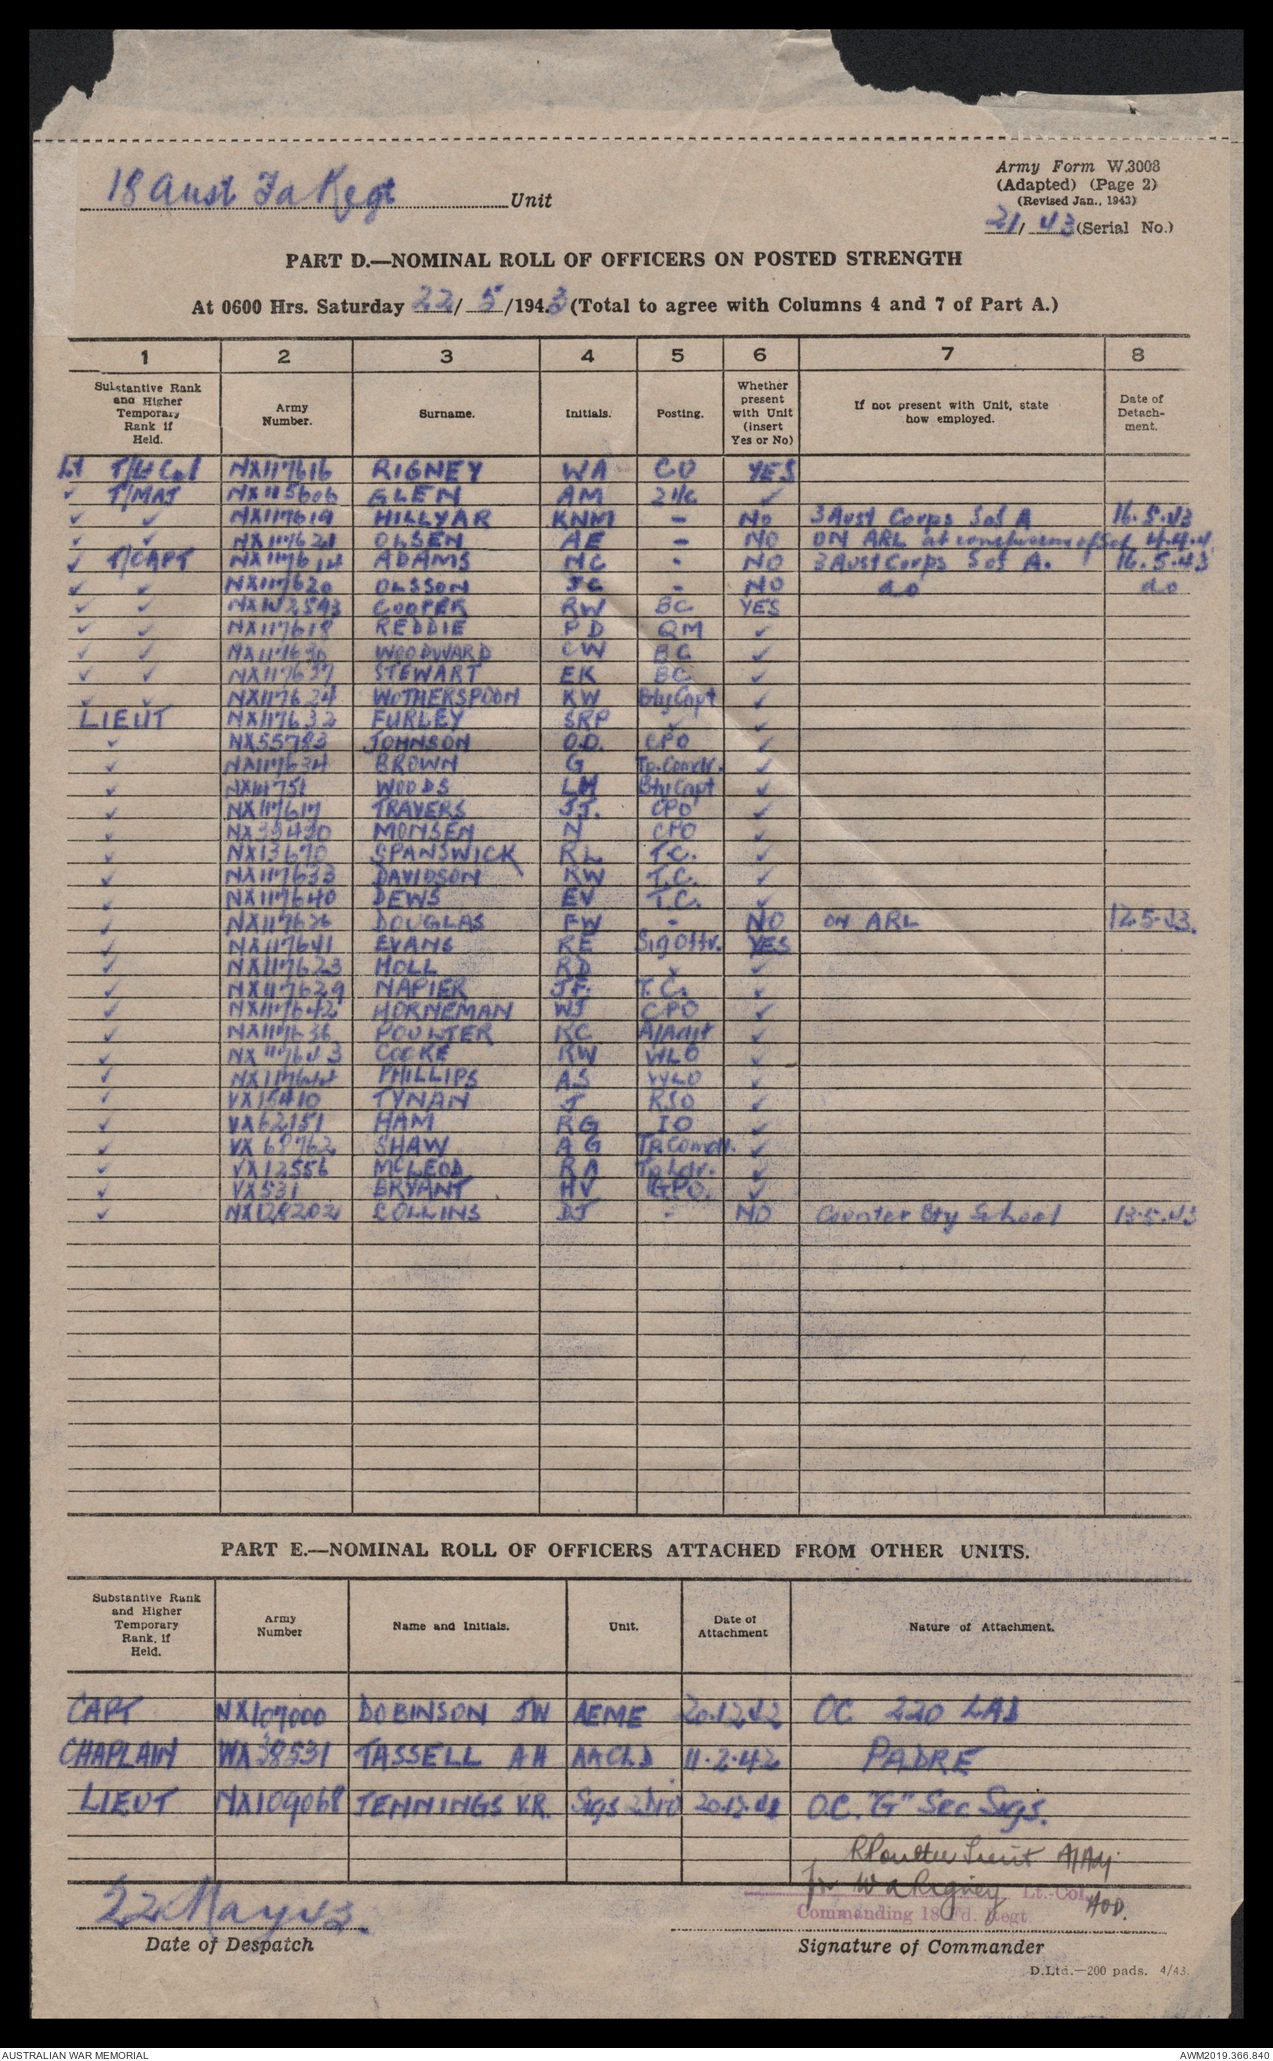 18 Aust Fd Regt Unit
Army Form W.3008
(Adapted) (Page 2)
(Revised Jan., 1943)
21/43 (Serial No.)
PART D.—NOMINAL ROLL OF OFFICERS ON POSTED STRENGTH
At 0600 Hrs. Saturday 22/5/1943 (Total to agree with Columns 4 and 7 of Part A.)
1 2 3 4 5 6 7 8
Substantive Rank and Higher Temporary Rank if Held. Army Number. Surname. Initials. Posting. Whether present with Unit (insert Yes or No) If not present with Unit, state how employed. Date of Detachment.
Lt T/Lt Col NX117616 RIGNEY WA CO YES
✓ T/MAJ NX115606 GLEN AM 2 I/c ✓
✓ ✓ NX117619 HILLYAR KNM - No 3 Aust Corps S of A 16.5.43
✓ ✓ NX117621 OLSEN AE - NO ON ARL at of S of
✓ T/CAPT NX117614 ADAMS NC - NO 3 Aust Corps S of A. 16.5.43
✓ ✓ NX117620 OLSSON JC - NO do do
✓ ✓ COOPER RW BC YES
✓ ✓ NX117618 REDDIE PD QM ✓
✓ ✓ NX117630 WOODWARD CW BC ✓
✓ ✓ NX117637 STEWART EK BC ✓
✓ ✓ NX117624 WOTHERSPOON KW Bty Capt ✓
LIEUT NX117632 FURLEY SRP ✓ ✓
✓ NX55793 JOHNSON O.D. CPO ✓
✓ NX117634 BROWN G Tp.Comdr. ✓
✓ WOODS LH Bty Capt ✓
✓ NX117617 TRAVERS JJ. CPO ✓
✓ NX39430 MONSEN N CPO ✓
✓ NX13670 SPANSWICK RL T.C. ✓
✓ NX117633 DAVIDSON KW T.C. ✓
✓ NX117640 DEWS EV T.C. ✓
✓ NX117626 DOUGLAS FW - NO ON ARL 12.5.43.
✓ NX117641 EVANS RE Sig Offr. YES
✓ NX117623 HOLL RD ✓ ✓
✓ NX117629 NAPIER JF. T.C. ✓
✓ NX117642 HORNEMAN WJ CPO ✓
✓ NX117636 POULTER RC A/Adjt ✓
✓ NX117643 COOKE KW WLO ✓
✓ NX117644 PHILLIPS AS WLO ✓
✓ VX15410 TYNAN J RSO ✓
✓ VX62151 HAM RG IO ✓
✓ VX68762 SHAW AG Tp.Comdr. ✓
✓ VX12556 MCLEOD RA Tp Ldr. ✓
✓ VX531 BRYANT HV GPO. ✓
✓ NX128202 COLLINS DJ - NO Counter Bty School 13.5.43
PART E.—NOMINAL ROLL OF OFFICERS ATTACHED FROM OTHER UNITS.
Substantive Rank and Higher Temporary Rank, if Held. Army Number Name and Initials. Unit. Date of Attachment Nature of Attachment.
CAPT NX107000 DOBINSON JW AEME 20.12.42 OC 220 LAD
CHAPLAIN WX38531 TASSELL AH AACHD 11.2.42 PADRE
LIEUT NX109068 JENNINGS V.R. Sigs 2 Div 20.12.42 O.C. "G" Sec Sigs.
RPoulter Lieut A/Adj
for WaRigney Lt.-Col. AOD.
Commanding 18 Fd. Regt
22 May 43
Date of Despatch
Signature of Commander
D.Ltd.—200 pads. 4/43.
AUSTRALIAN WAR MEMORIAL
AWM2019.366.840